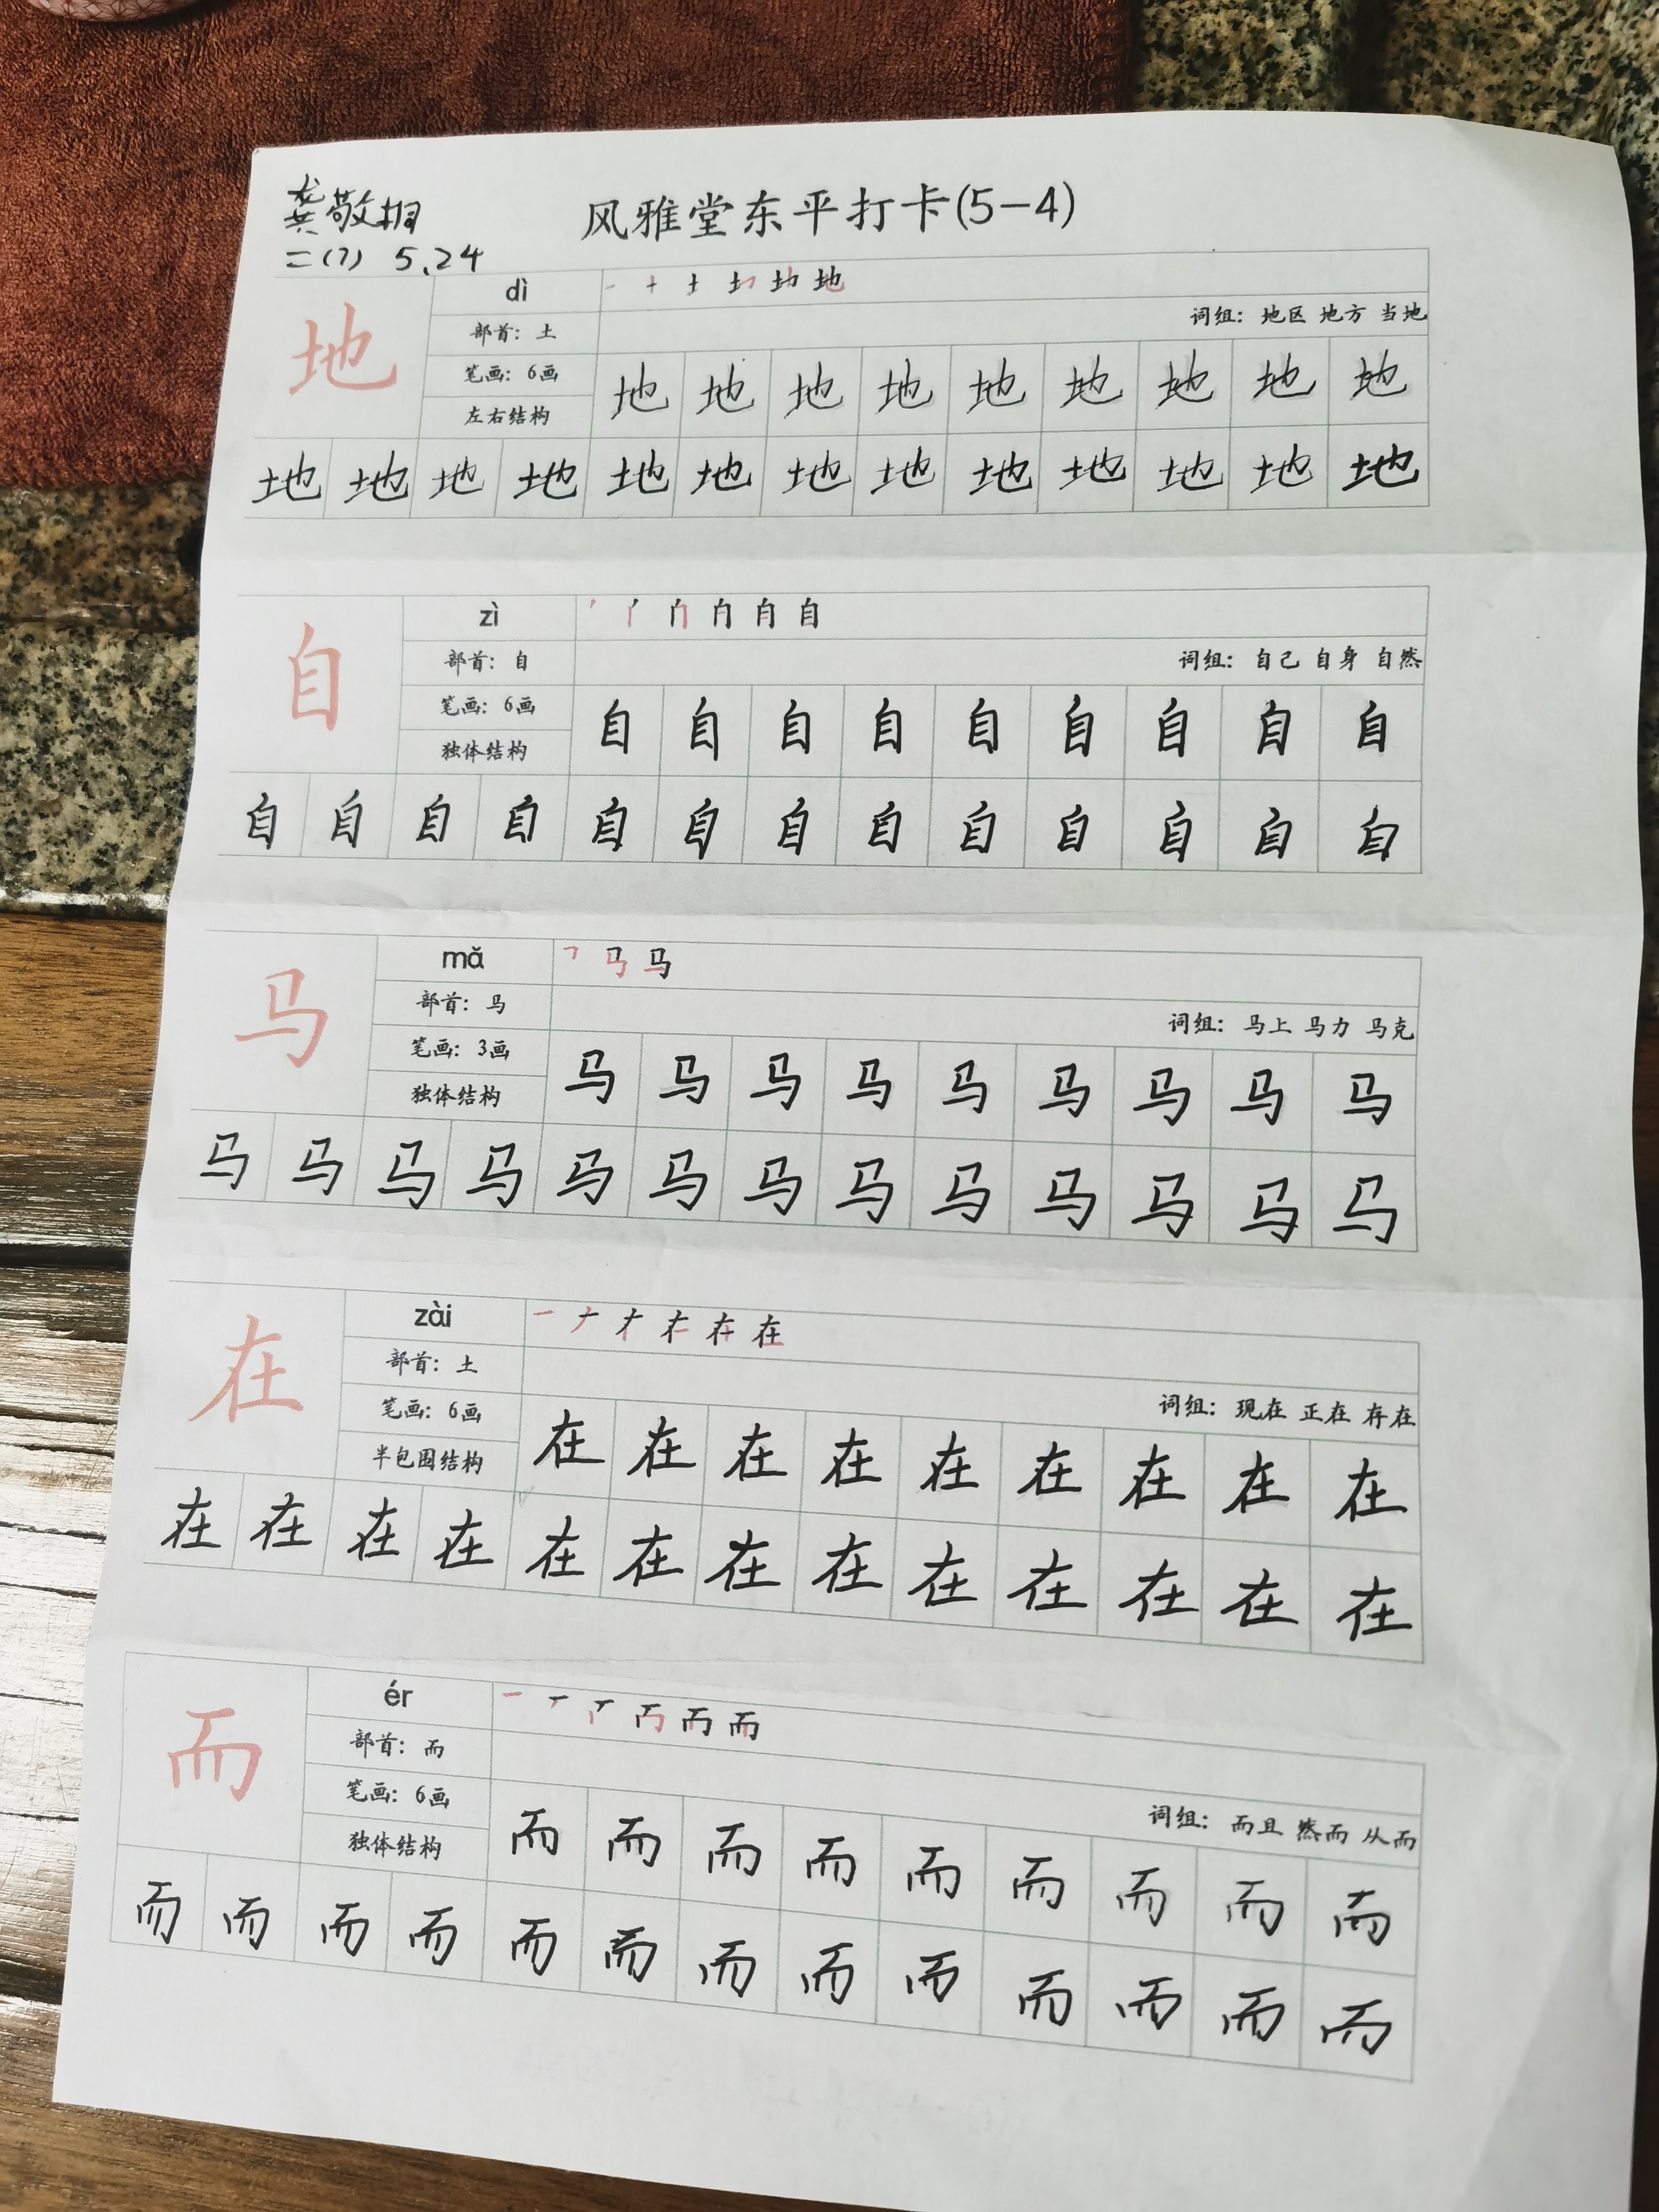 龚敬桐
二(7) 5.24
风雅堂东平打卡(5-4)
地
dì
部首：土
笔画：6画
左右结构
词组：地区 地方 当地
地 地 地 地 地 地 地 地 地
地 地 地 地 地 地 地 地 地 地 地 地 地
自
zì
部首：自
笔画：6画
独体结构
词组：自己 自身 自然
自 自 自 自 自 自 自 自 自
自 自 自 自 自 自 自 自 自 自 自 自 自
马
mǎ
部首：马
笔画：3画
独体结构
词组：马上 马力 马克
马 马 马 马 马 马 马 马 马
马 马 马 马 马 马 马 马 马 马 马 马 马
在
zài
部首：土
笔画：6画
半包围结构
词组：现在 正在 存在
在 在 在 在 在 在 在 在 在
在 在 在 在 在 在 在 在 在 在 在 在 在
而
ér
部首：而
笔画：6画
独体结构
词组：而且 然而 从而
而 而 而 而 而 而 而 而 而
而 而 而 而 而 而 而 而 而 而 而 而 而